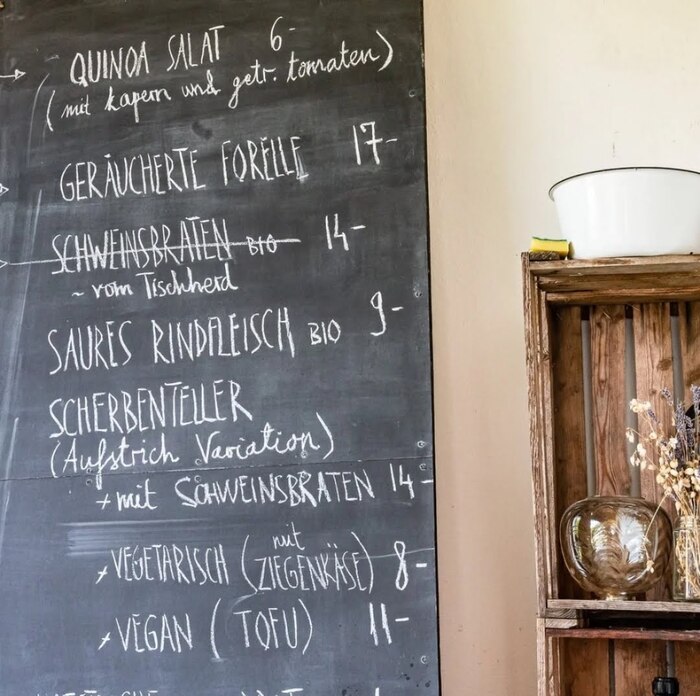 QUINOA SALAT 6-
(mit kapern und getr. tomaten)
GERÄUCHERTE FORELLE 17-
SCHWEINSBRATEN BIO 14-
~ vom Tischherd
SAURES RINDFLEISCH BIO 9-
SCHERBENTELLER
(Aufstrich Variation)
+ mit SCHWEINSBRATEN 14-
+ VEGETARISCH (mit ZIEGENKÄSE) 8-
+ VEGAN (TOFU) 11-